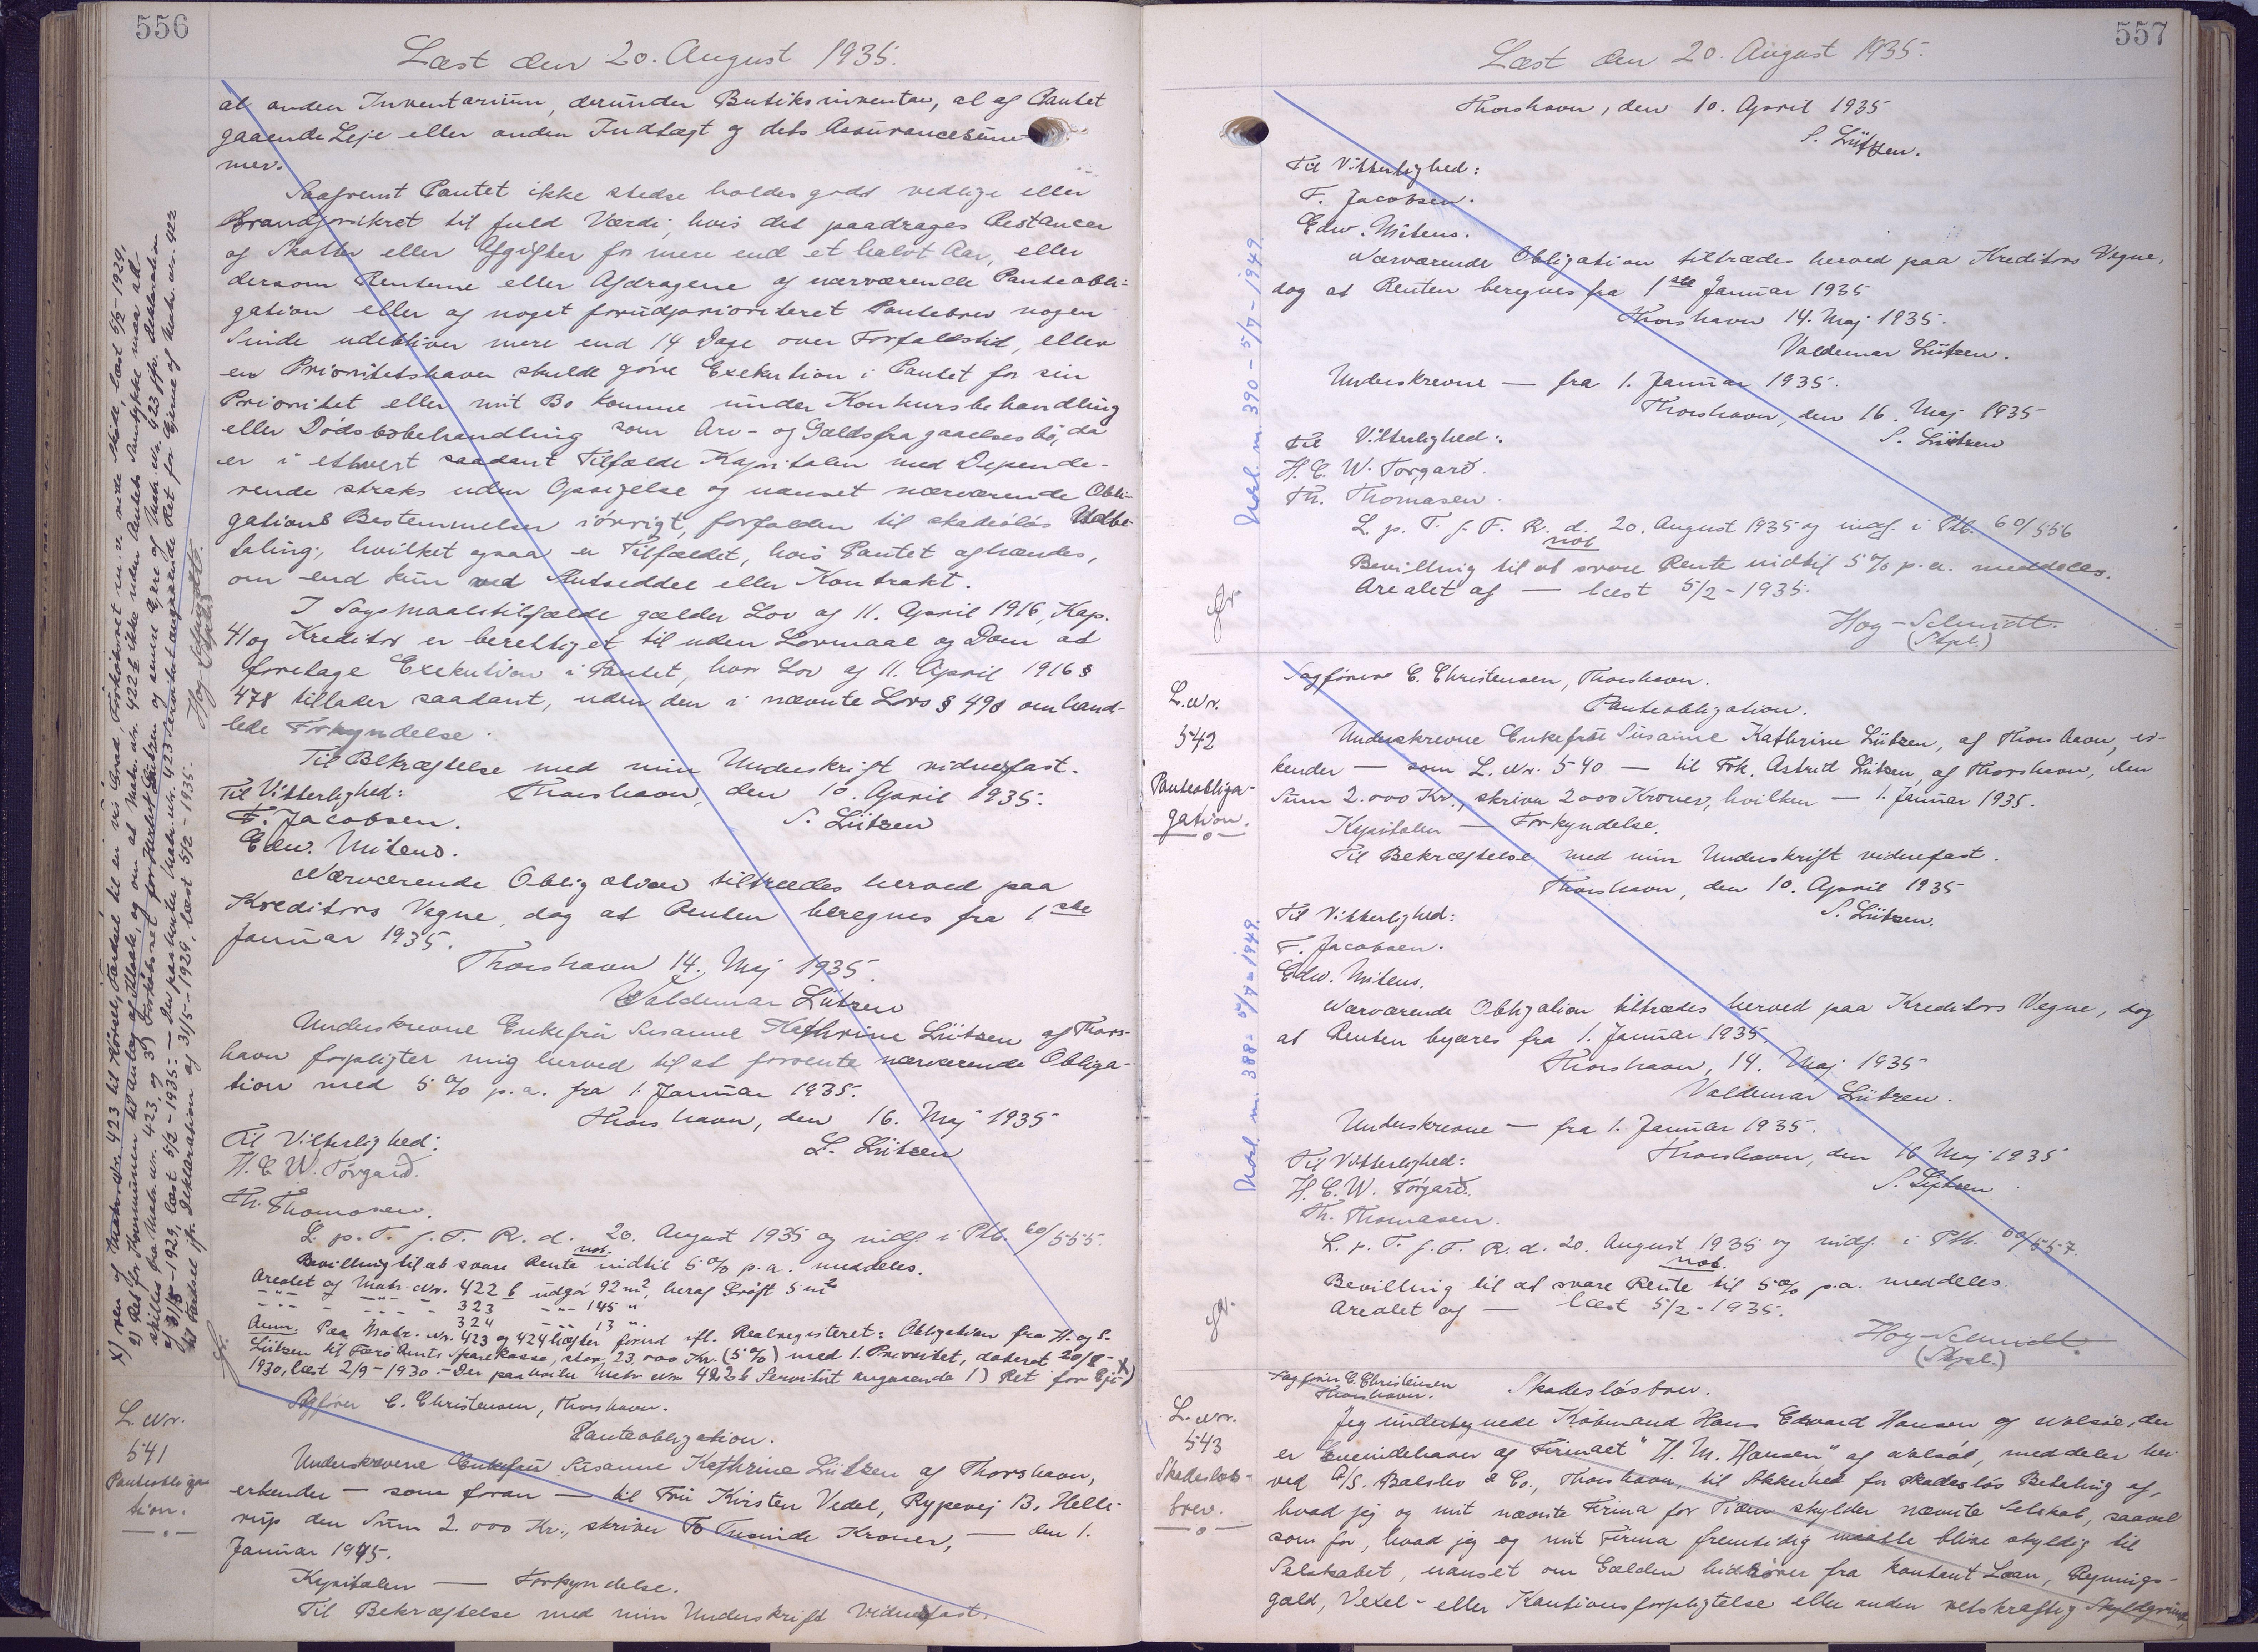 556
Læst den 20. August 1935.
al anden Inventarium, derunder Butiksinventar, al af Pantet
gaaende Leje eller anden Indtægt og dets Assurancesum-
mer.
Saafremt Pantet ikke stedse holdes godt vedlige eller
brandforsikret til fuld Værdi, hvis det paadrages Restancer
af Skatter eller Afgifter for mere end et halvt Aar, eller
dersom Renterne eller Afdragene af nærværende Panteobli-
gation eller af noget forudprioriteret Pantebrev nogen
Sinde udebliver mere end 14 Dage over Forfaldstid, eller
en Prioritetshaver skulde gøre Exekution i Pantet for sin
Prioritet eller mit Bo komme under Konkursbehandling
eller Dødsbobehandling som Arv- og Gældsfragaaelsesbo, da
er i ethvert saadant Tilfælde Kapitalen med Depende-
rende straks uden Opsigelse og uanset nærværende Obli-
gations Bestemmelser iøvrigt, forfalden til skadesløs Udbe-
taling, hvilket ogsaa er Tilfældet, hvis Pantet afhændes,
om end kun ved Slutseddel eller Kontrakt.
I Søgsmaalstilfælde gælder Lov af 11. April 1916, Kap.
41 og Kreditor er berettiget til uden Lovmaal og Dom at
foretage Exekution i Pantet, hvor Lov af 11. April 1916 §
478 tillader saadant, uden den i nævnte Lovs § 490 omhand-
lede Forkyndelse.
Til Bekræftelse med min Underskrift vidnefast.
Til Vitterlighed: Thorshavn, den 10. April 1935.
F. Jacobsen. S. Lützen
Edw. Mitens.
Nærværende Obligation tiltrædes herved paa
Kreditors Vegne, dog at Renten beregnes fra 1ste
Januar 1935.
Thorshavn 14. Maj 1935.
Valdemar Lützen
Underskrevne Enkefru Susanne Kathrine Lützen af Thors-
havn forpligter mig herved til at forrente nærværende Obliga-
tion med 5 % p.a. fra 1. Januar 1935.
Thorshavn, den 16. Maj 1935
Til Vitterlighed: S. Lützen
H. C. W. Tórgarð.
Th. Thomasen.
L. p. T. f. F. R. d. 20. August 1935 og indf. i Ptb. 60/555.
not.
Bevilling til at svare Rente indtil 5 % p.a. meddeles.
Arealet af Matr. Nr. 422 b udgør 92 m², heraf Grøft 5 m²
-"- - -"- - 323 -"- 145 "
-"- - -"- - 324 -"- 13 ".
Anm. Paa Matr. Nr. 423 og 424 hæfter forud ifl. Realregisteret: Obligation fra H. og S.
Lützen til Færø Amts Sparekasse, stor 23,000 Kr. (5 %) med 1. Prioritet, dateret 20/8-
1930, læst 2/9-1930. - Der paahviler Matr. Nr. 422 b Servitut angaaende 1) Ret for Eje- x)
x) ren af Matr. Nr. 423 til Kørsel, Færdsel til en vis Grad, Forkøbsret en vis Side, læst 5/2-1929,
Hoy-Schmidt
(Stpl.)
L. Nr.
541
Panteobliga-
tion.
Sagfører C. Christensen, Thorshavn.
Panteobligation.
Underskrevne Enkefru Susanne Kathrine Lützen af Thorshavn,
erkender — som foran — til Fru Kirsten Vedel, Rypevej 13, Helle-
rup den Sum 2.000 Kr., skriver To Tusinde Kroner, — den 1.
Januar 1935.
Kapitalen — Forkyndelse.
Til Bekræftelse med min Underskrift vidnefast.
557
Læst den 20. August 1935.
Thorshavn, den 10. April 1935
S. Lützen.
Til Vitterlighed:
F. Jacobsen.
Edw. Mitens.
Nærværende Obligation tiltrædes herved paa Kreditors Vegne,
dog at Renten beregnes fra 1ste Januar 1935
Thorshavn 14. Maj 1935.
Valdemar Lützen.
Underskrevne — fra 1. Januar 1935.
Thorshavn, den 16. Maj 1935
Til Vitterlighed: S. Lützen
H. C. W. Tórgarð.
Th. Thomasen.
L. p. T. f. F. R. d. 20. August 1935 og indf. i Ptb. 60/556
not
Bevilling til at svare Rente indtil 5 % p.a. meddeles.
Arealet af — læst 5/2-1935.
Hoy-Schmidt.
(Stpl.)
390 - 5/7-1949.
L. Nr.
542
Panteobliga-
gation.
Sagfører C. Christensen, Thorshavn.
Panteobligation.
Underskrevne Enkefrue Susanne Kathrine Lützen, af Thorshavn, er-
kender — som L. Nr. 540 — til Frk. Astrid Lützen, af Thorshavn, den
Sum 2.000 Kr., skriver 2000 Kroner, hvilken — 1. Januar 1935.
Kapitalen — Forkyndelse.
Til Bekræftelse med min Underskrift vidnefast.
Thorshavn, den 10. April 1935
Til Vitterlighed: S. Lützen.
F. Jacobsen.
Edw. Mitens.
Nærværende Obligation tiltrædes herved paa Kreditors Vegne, dog
at Renten begæres fra 1. Januar 1935.
Thorshavn, 14. Maj 1935
Valdemar Lützen.
Underskrevne — fra 1. Januar 1935.
Til Vitterlighed: Thorshavn, den 16 Maj 1935
H. C. W. Tórgarð. S. Lützen
Th. Thomasen.
L. p. T. f. F. R. d. 20. August 1935 og indf. i Ptb. 60/557.
not.
Bevilling til at svare Rente til 5 % p.a. meddeles.
Arealet af — læst 5/2-1935.
Hoy-Schmidt.
(Stpl.)
388 - 5/7-1949.
L. Nr.
543
Skadesløs-
brev.
Sagfører C. Christensen
Thorshavn. Skadesløsbrev.
Jeg undertegnede Købmand Hans Edvard Hansen af Nolsø, der
er Eneindehaver af Firmaet "H. M. Hansen" af Nolsø, meddeler her-
ved A/S. Balslev & Co., Thorshavn, til Sikkerhed for skadesløs Betaling af,
hvad jeg og mit nævnte Firma for Tiden skylder nævnte Selskab, saavel
som for, hvad jeg og mit Firma fremtidig maatte blive skyldig til
Selskabet, uanset om Gælden hidrører fra kontant Laan, Regnings-
gæld, Vexel- eller Kautionsforpligtelse eller anden retskraftig Skyldgrund,